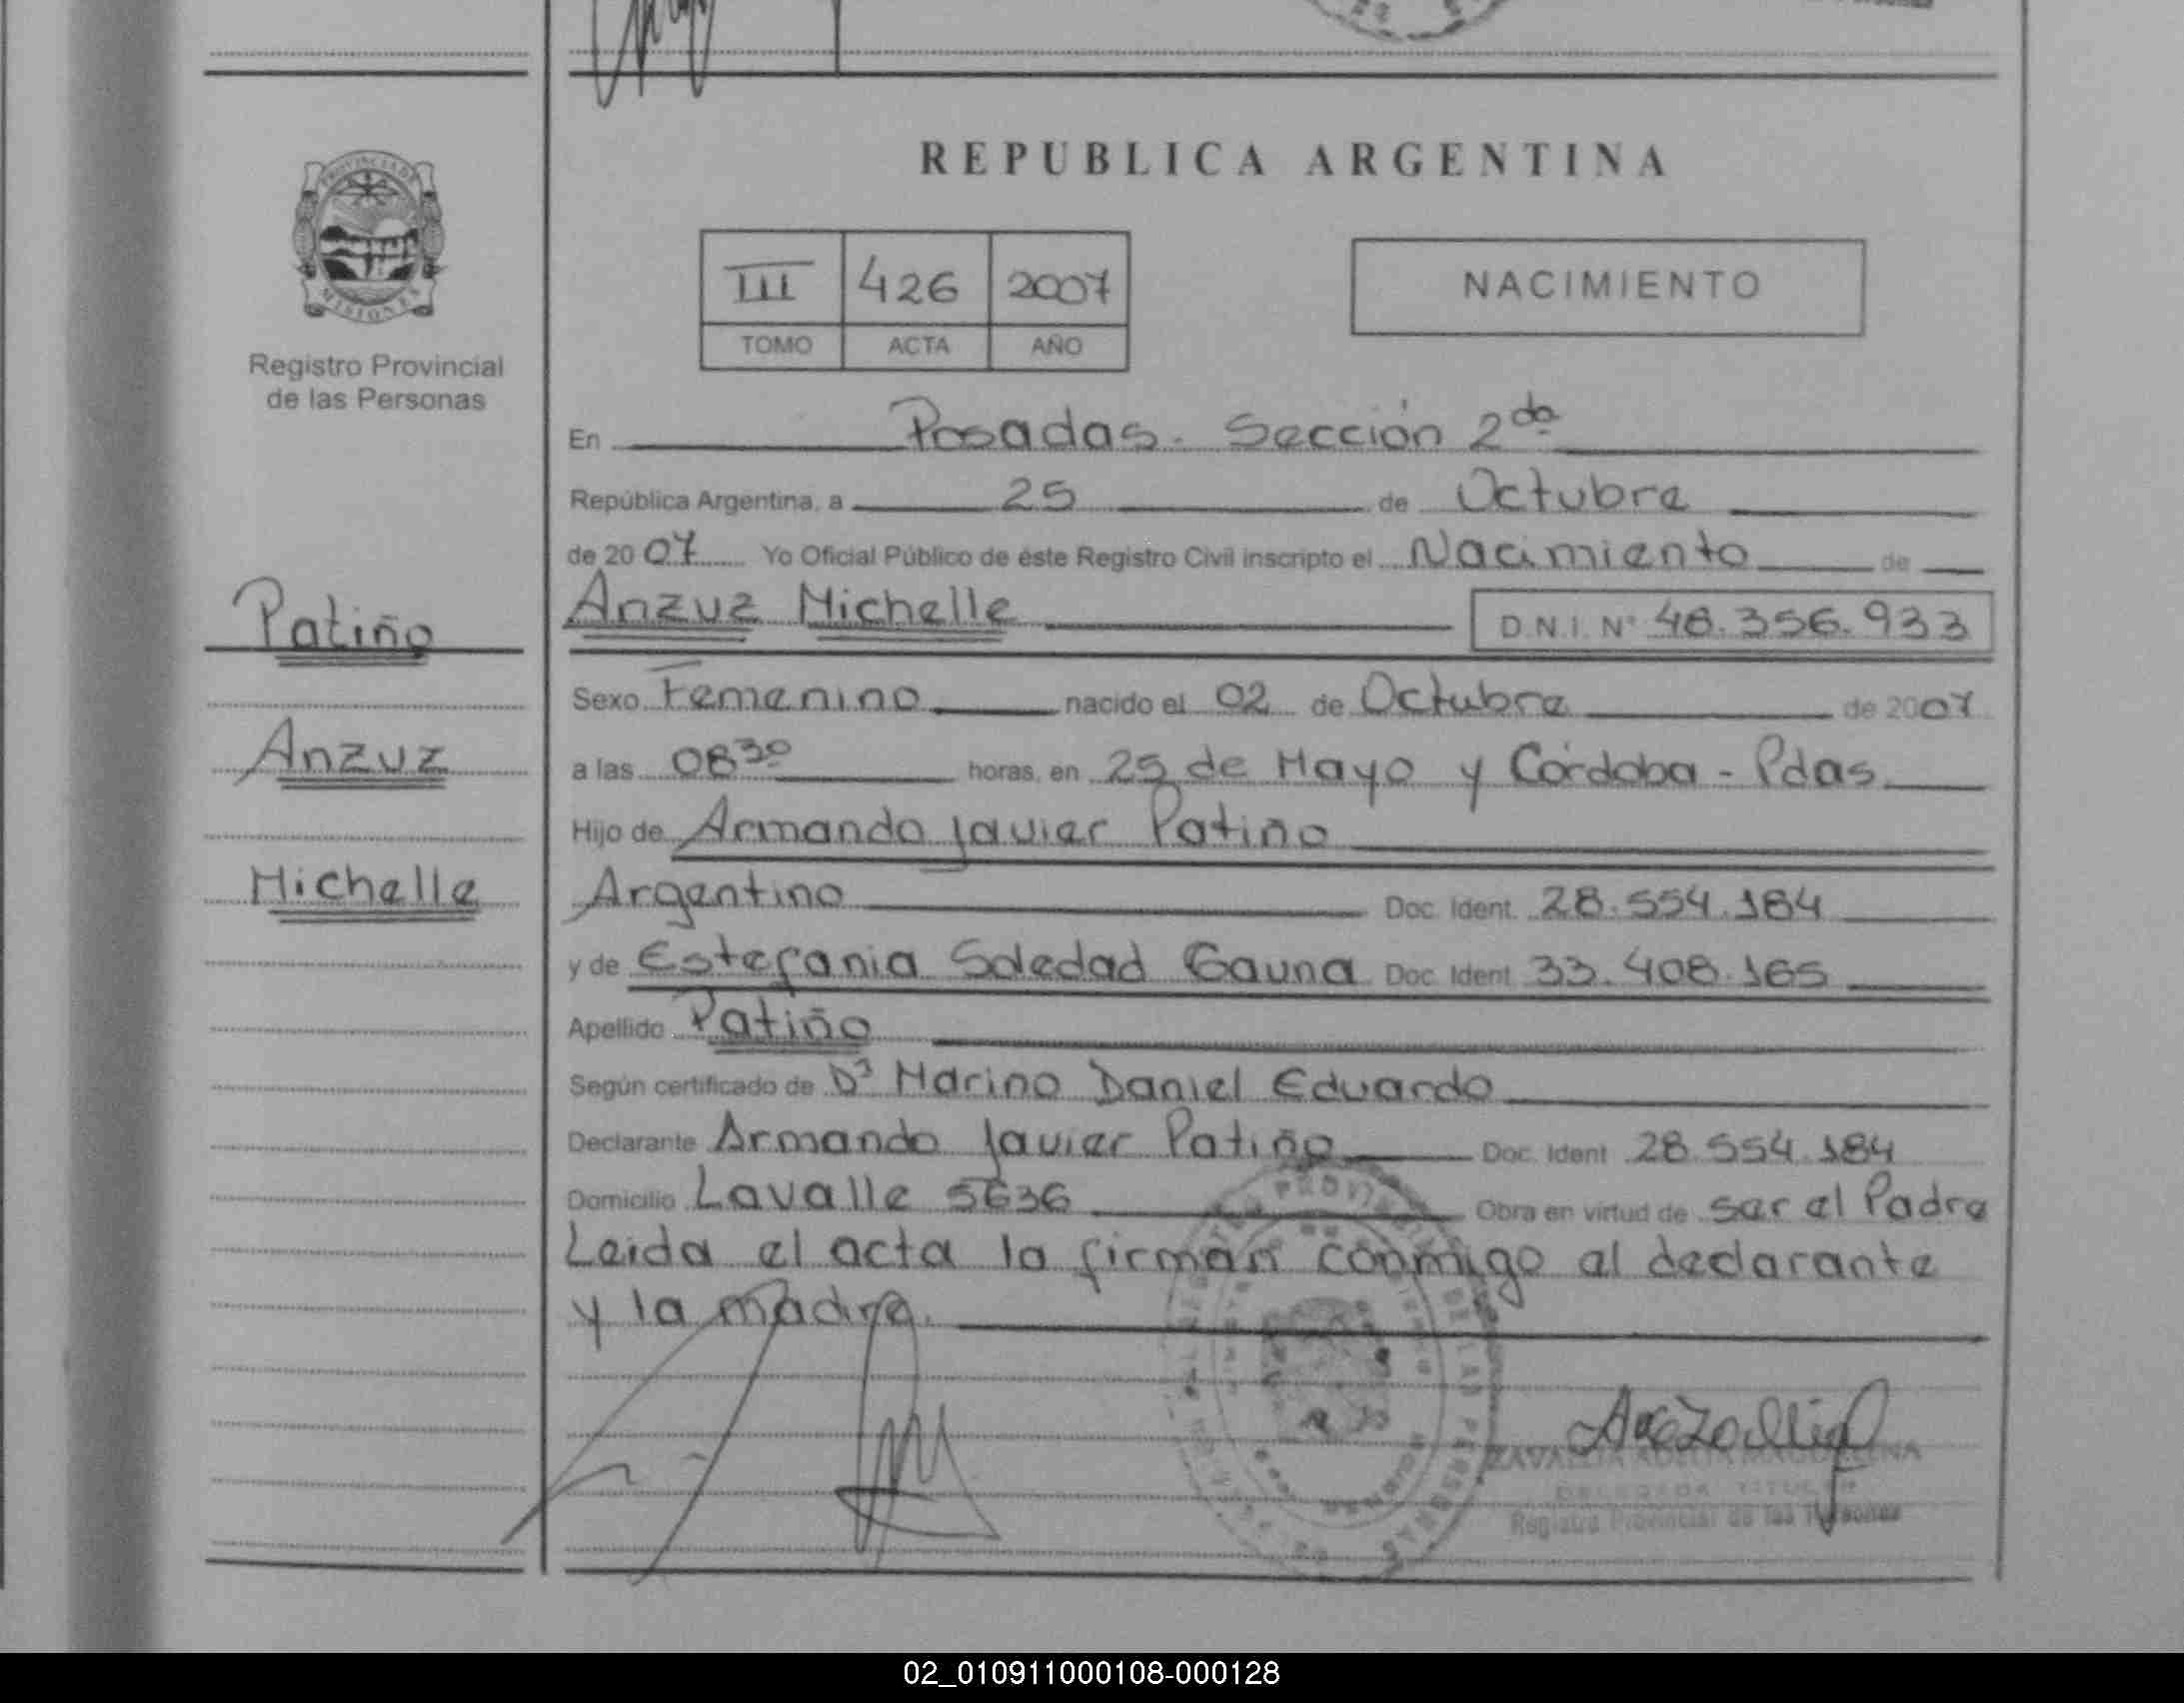 REPUBLICA ARGENTINA
PROVINCIA DE
MISIONES
Registro Provincial
de las Personas
III 426 2007
TOMO ACTA AÑO
NACIMIENTO
En Posadas. Sección 2da
República Argentina, a 25 de Octubre
de 2007 Yo Oficial Público de éste Registro Civil inscripto el Nacimiento de
Anzuz Michelle D.N.I. Nº 48.356.933
Patiño
Anzuz
Michelle
Sexo Femenino nacido el 02 de Octubre de 2007
a las 0830 horas, en 25 de Mayo y Córdoba - Pdas
Hijo de Armando Javier Patiño
Argentino Doc. Ident. 28.554.184
y de Estefania Soledad Gauna Doc. Ident. 33.408.165
Apellido Patiño
Según certificado de Marino Daniel Eduardo
Declarante Armando Javier Patiño Doc. Ident 28.554.184
Domicilio Lavalle 5636 Obra en virtud de ser el Padre
Leida el acta la firman conmigo el declarante
y la madre.
DELEGADA TITULAR
Registro Provincial de las Personas
02_010911000108-000128